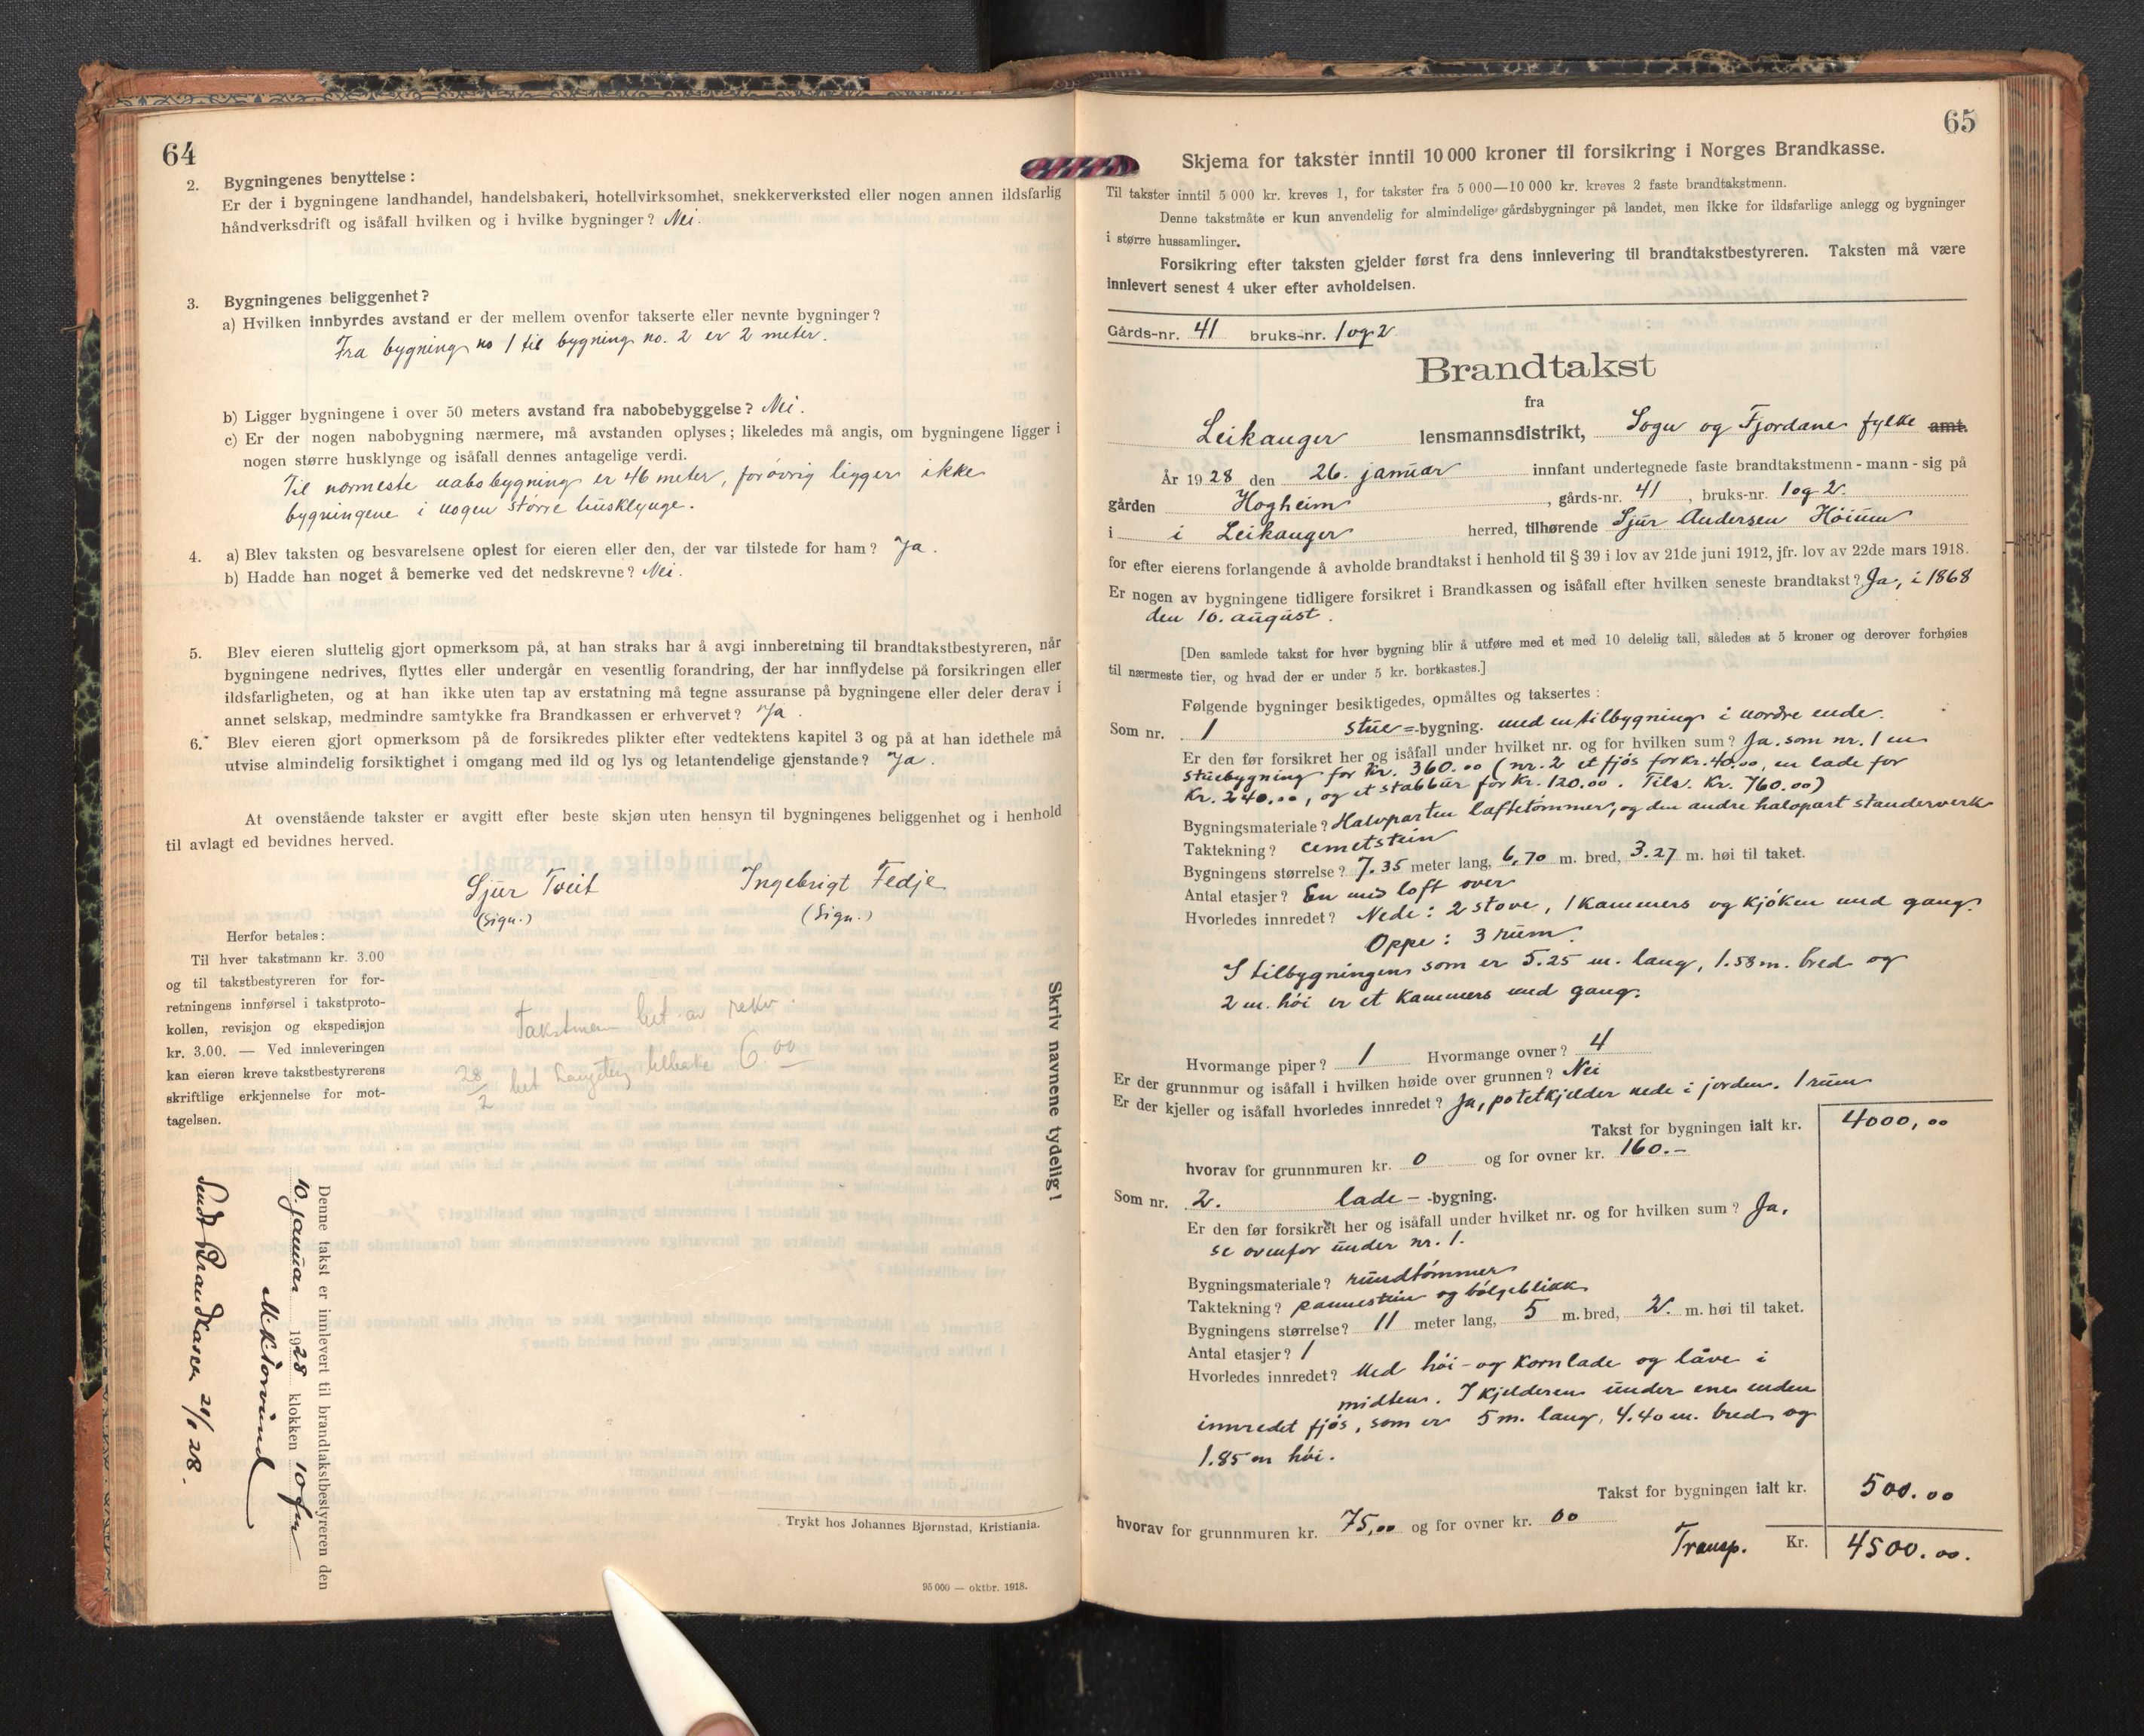 64
2. Bygningenes benyttelse:
Er der i bygningene landhandel, handelsbakeri, hotellvirksomhet, snekkerverksted eller nogen annen ildsfarlig
håndverksdrift og isåfall hvilken og i hvilke bygninger? Nei.
3. Bygningenes beliggenhet?
a) Hvilken innbyrdes avstand er der mellem ovenfor takserte eller nevnte bygninger?
Fra bygning no 1 til bygning no. 2 er 2 meter.
b) Ligger bygningene i over 50 meters avstand fra nabobebyggelse? Nei.
c) Er der nogen nabobygning nærmere, må avstanden oplyses; likeledes må angis, om bygningene ligger i
nogen større husklynge og isåfall dennes antagelige verdi.
Til nærmeste nabobygning er 46 meter, forøvrig ligger ikke
bygningene i nogen større husklynge.
4. a) Blev taksten og besvarelsene oplest for eieren eller den, der var tilstede for ham? Ja.
b) Hadde han noget å bemerke ved det nedskrevne? Nei.
5. Blev eieren sluttelig gjort opmerksom på, at han straks har å avgi innberetning til brandtakstbestyreren, når
bygningene nedrives, flyttes eller undergår en vesentlig forandring, der har innflydelse på forsikringen eller
ildsfarligheten, og at han ikke uten tap av erstatning må tegne assuranse på bygningene eller deler derav i
annet selskap, medmindre samtykke fra Brandkassen er erhvervet? Ja.
6. Blev eieren gjort opmerksom på de forsikredes plikter efter vedtektens kapitel 3 og på at han idethele må
utvise almindelig forsiktighet i omgang med ild og lys og letantendelige gjenstande? Ja.
At ovenstående takster er avgitt efter beste skjøn uten hensyn til bygningenes beliggenhet og i henhold
til avlagt ed bevidnes herved.
Sjur Tveit Ingebrigt Fedje
(Sign.) (Sign.)
Herfor betales:
Til hver takstmann kr. 3.00
og til takstbestyreren for for-
retningens innførsel i takstproto-
kollen, revisjon og ekspedisjon
kr. 3.00. — Ved innleveringen
kan eieren kreve takstbestyrerens
skriftlige erkjennelse for mot-
tagelsen.
Takstmen bet av
28/2 bet 6.00
Skriv navnene tydelig!
Denne takst er innlevert til brandtakstbestyreren den
10. januar 1928 klokken 10 fm
Sendt Brandkassen 21/1 28.
Trykt hos Johannes Bjørnstad, Kristiania.
95 000 — oktbr. 1918.
65
Skjema for takster inntil 10 000 kroner til forsikring i Norges Brandkasse.
Til takster inntil 5 000 kr. kreves 1, for takster fra 5 000—10 000 kr. kreves 2 faste brandtakstmenn.
Denne takstmåte er kun anvendelig for almindelige gårdsbygninger på landet, men ikke for ildsfarlige anlegg og bygninger
i større hussamlinger.
Forsikring efter taksten gjelder først fra dens innlevering til brandtakstbestyreren. Taksten må være
innlevert senest 4 uker efter avholdelsen.
Gårds-nr. 41 bruks-nr. 1 og 2
Brandtakst
fra
Leikanger lensmannsdistrikt, Sogn og Fjordane fylke amt.
År 1928 den 26. januar innfant undertegnede faste brandtakstmenn - mann - sig på
gården Hogheim, gårds-nr. 41, bruks-nr. 1 og 2.
i i Leikanger herred, tilhørende Sjur Andersen Høium
for efter eierens forlangende å avholde brandtakst i henhold til § 39 i lov av 21de juni 1912, jfr. lov av 22de mars 1918.
Er nogen av bygningene tidligere forsikret i Brandkassen og isåfall efter hvilken seneste brandtakst? Ja, i 1868
den 10. august.
[Den samlede takst for hver bygning blir å utføre med et med 10 delelig tall, således at 5 kroner og derover forhøies
til nærmeste tier, og hvad der er under 5 kr. bortkastes.]
Følgende bygninger besiktigedes, opmåltes og taksertes:
Som nr. 1 stue=-bygning. med en tilbygning i nordre ende.
Er den før forsikret her og isåfall under hvilket nr. og for hvilken sum? Ja. som nr. 1 en
stuebygning for kr. 360.00 (nr. 2 et fjøs for kr. 40.00, en lade for
kr. 240.00, og et stabbur for kr. 120.00. Tils. kr. 760.00)
Bygningsmateriale? Halvparten laftetømmer, og den andre halvpart standerverk
Taktekning? cemetstein
Bygningens størrelse? 7.35 meter lang, 6,70 m. bred, 3.27 m. høi til taket.
Antal etasjer? En med loft over
Hvorledes innredet? Nede: 2 stove, 1 kammers og kjøken med gang.
Oppe: 3 rum.
I tilbygningen som er 5.25 m. lang, 1.58 m. bred og
2 m. høi er et kammers med gang.
Hvormange piper? 1 Hvormange ovner? 4
Er der grunnmur og isåfall i hvilken høide over grunnen? Nei
Er der kjeller og isåfall hvorledes innredet? Ja, potetkjelder nede i jorden. 1 rum
Takst for bygningen ialt kr. 4000,00
hvorav for grunnmuren kr. 0 og for ovner kr. 160.-
Som nr. 2. lade - -bygning.
Er den før forsikret her og isåfall under hvilket nr. og for hvilken sum? Ja.
se ovenfor under nr. 1.
Bygningsmateriale? rundtømmer
Taktekning? pannestein og bølgeblikk
Bygningens størrelse? 11 meter lang, 5 m. bred, 2. m. høi til taket.
Antal etasjer? 1
Hvorledes innredet? Med høi- og kornlade og låve i
midten. I kjelderen under ene enden
innredet fjøs, som er 5 m. lang, 4.40 m. bred og
1.85 m høi.
Takst for bygningen ialt kr. 500.00
hvorav for grunnmuren kr. 75,00 og for ovner kr. 00
Transp. Kr. 4500.00.